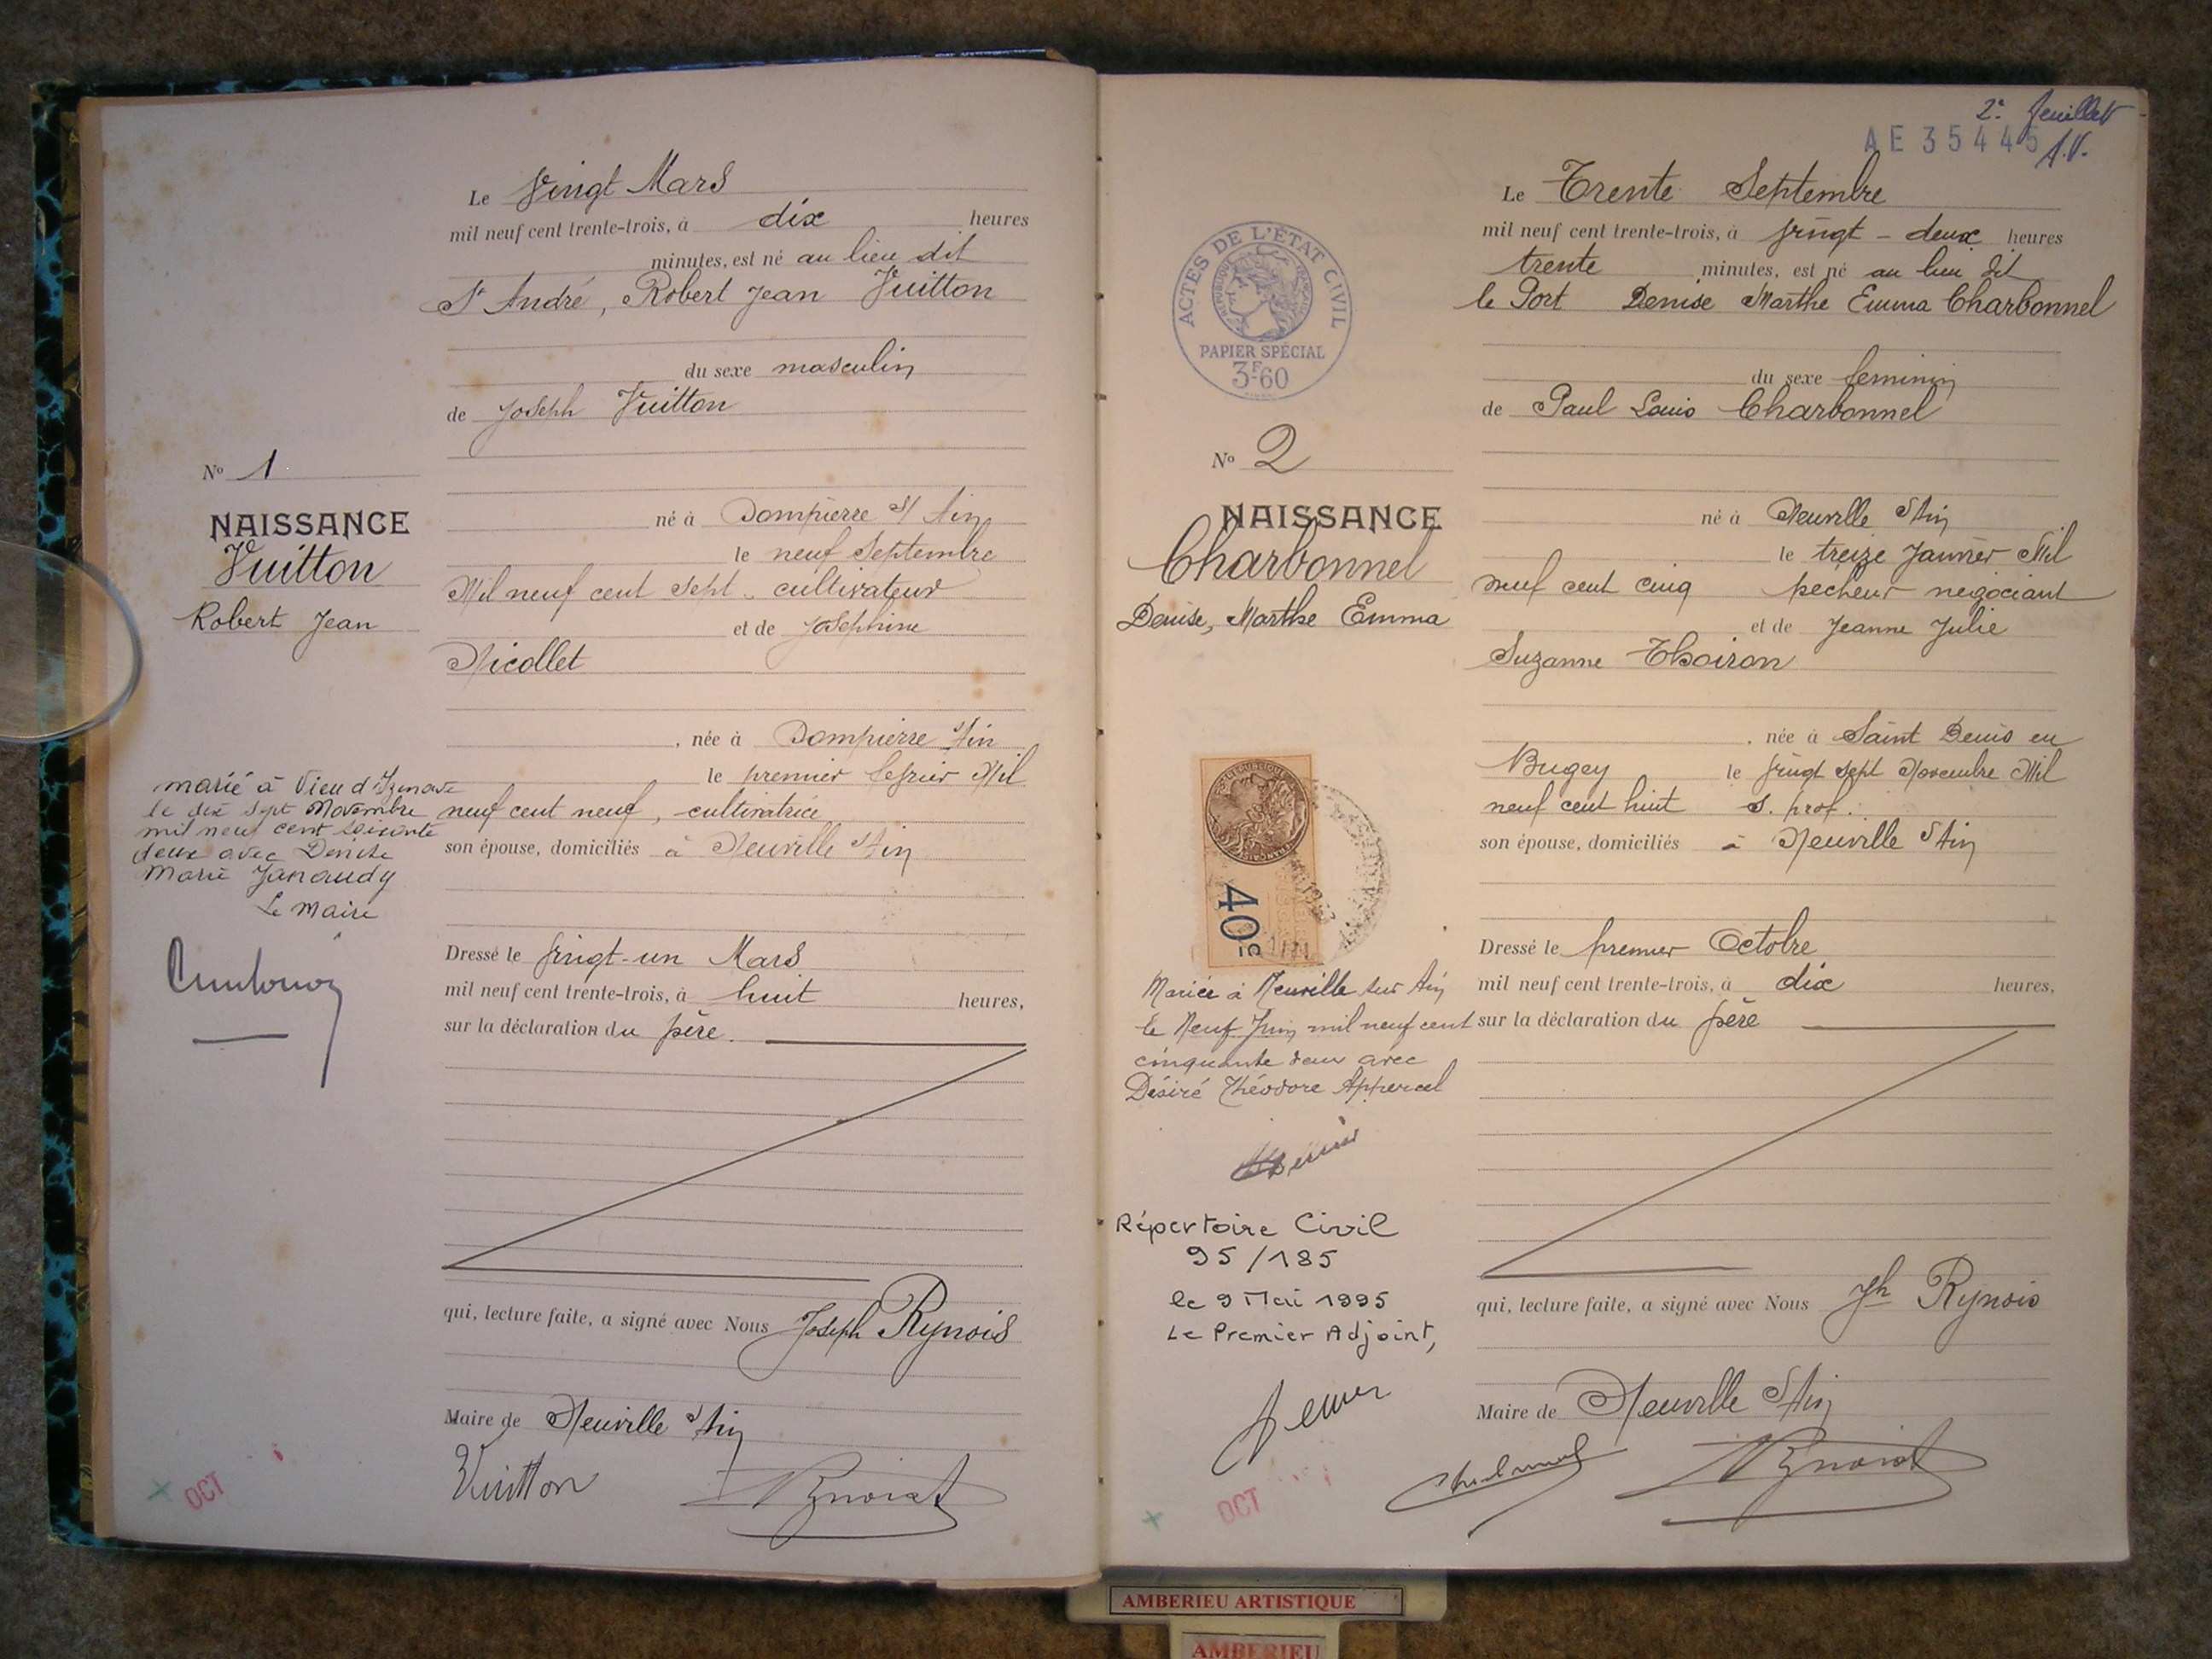 Le Vingt Mars
mil neuf cent trente-trois, à dix heures
minutes, est né au lieu dit
St André, Robert Jean Vuitton
du sexe masculin
de Joseph Vuitton
No 1
NAISSANCE
Vuitton
Robert Jean
né à Dompierre s/ Ain
le neuf Septembre
Mil neuf cent sept. cultivateur
et de Joséphine
Nicollet
, née à Dompierre s/Ain
le premier Février Mil
neuf cent neuf, cultivatrice
son épouse, domiciliés à Neuville s/Ain
marié à Vieu d'Izenave
le dix sept Novembre
mil neuf cent soixante
deux avec Denise
Marie Janaudy
Le Maire
Dressé le Vingt-un Mars
mil neuf cent trente-trois, à huit heures,
sur la déclaration du père.
qui, lecture faite, a signé avec Nous Joseph Rynois
Maire de Neuville s/Ain
Vuitton
OCT
2e feuillet
AE 35445
ACTES DE L'ÉTAT CIVIL
PAPIER SPÉCIAL
3F60
Le Trente Septembre
mil neuf cent trente-trois, à Vingt-deux heures
trente minutes, est né au lieu dit
le Port Denise Marthe Emma Charbonnel
du sexe féminin
de Paul Louis Charbonnel
No 2
NAISSANCE
Charbonnel
Denise, Marthe Emma
né à Neuville s/Ain
le treize Janvier Mil
neuf cent cinq pêcheur négociant
et de Jeanne Julie
Suzanne Thoiron
, née à Saint Denis en
Bugey le Vingt sept Novembre Mil
neuf cent huit s. prof.
son épouse, domiciliés à Neuville s/Ain
40c
Mariée à Neuville sur Ain
le Neuf Juin mil neuf cent
cinquante deux avec
Désiré Théodore Appercel
Dressé le premier Octobre
mil neuf cent trente-trois, à dix heures,
sur la déclaration du père
Répertoire Civil
95/185
le 9 Mai 1995
Le Premier Adjoint,
qui, lecture faite, a signé avec Nous Jh Rynois
Maire de Neuville s/Ain
OCT
AMBERIEU ARTISTIQUE
AMBERIEU